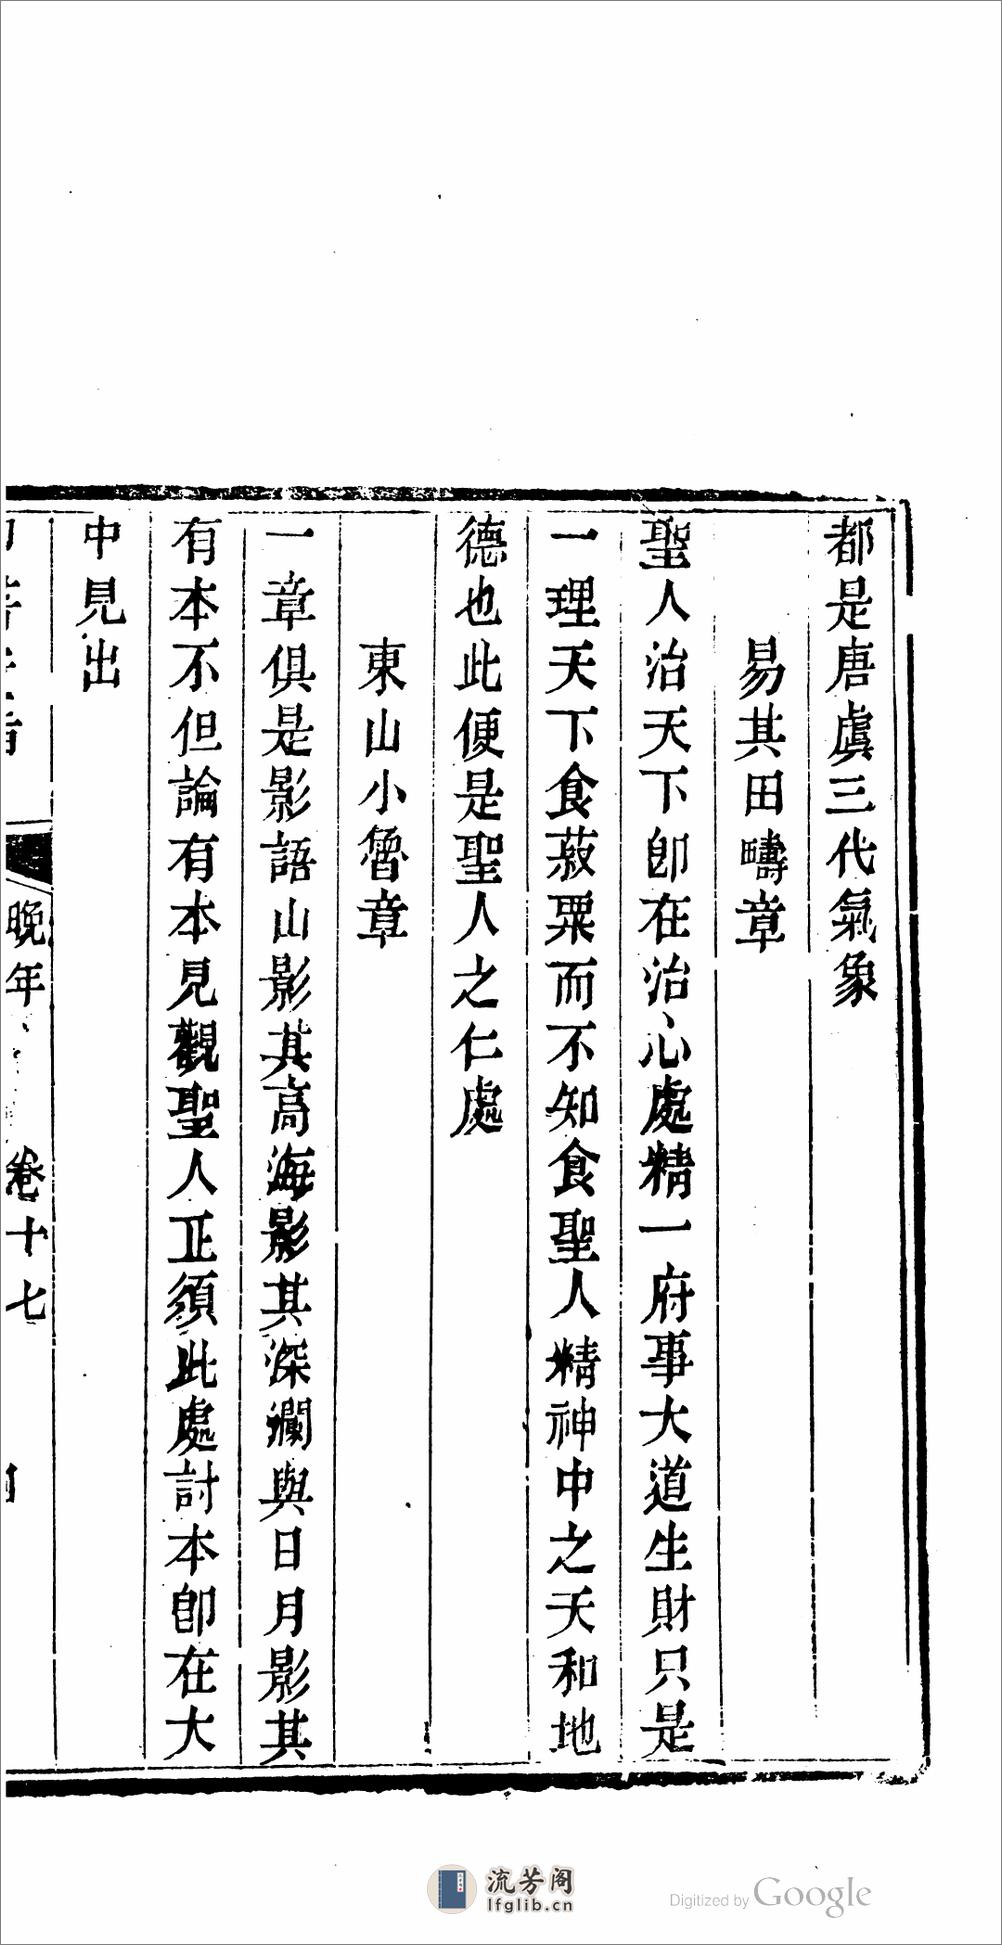 都是唐虞三代氣象
易其田疇章
聖人治天下卽在治心處精一府事大道生財只是
一理天下食菽粟而不知食聖人精神中之天和地
德也此便是聖人之仁處
東山小魯章
一章俱是影語山影其高海影其深瀾與日月影其
有本不但論有本見觀聖人正須此處討本卽在大
中見出
晚年
卷十七
流芳阁
lfglib.cn
Digitized by Google